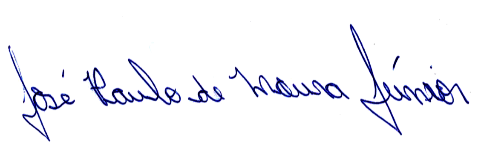 José Paulo de Moura Júnior